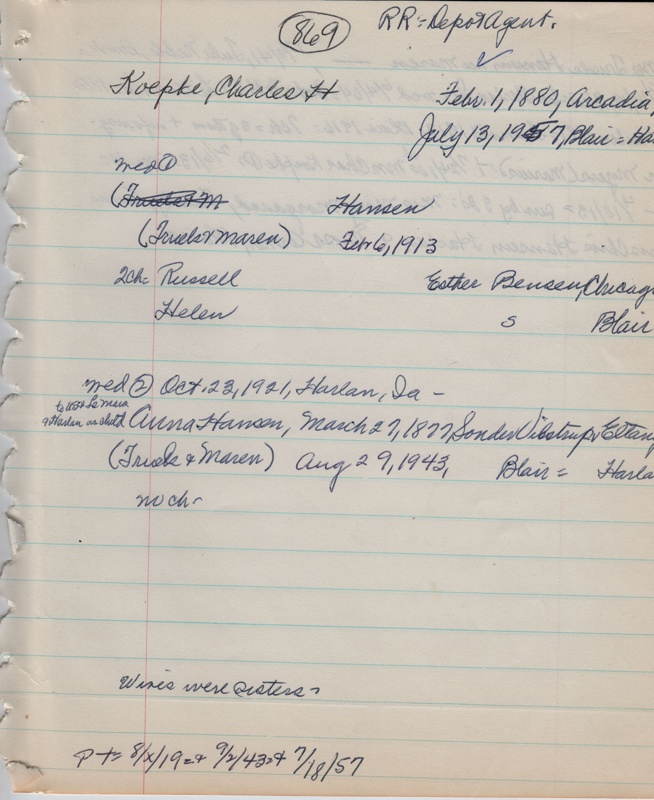 869
RR = Depot Agent.
Koepke, Charles H Febr. 1, 1880, Arcadia,
July 13, 1957, Blair = Ha
med ①
Hansen
(Frick & Maren) Feb 6, 1913
2ch = Russell Esther Bensen, Chicag
Helen s Blair
med ② Oct. 23, 1921, Harlan, Ia -
to US &
& Harlan as child
Anna Hansen, March 27, 1877, Sonder Vilstrup,
(Frick & Maren) Aug 29, 1943, Blair = Harla
no ch -
Wives were sisters -
P += 8/x/19 = + 9/2/43 = + 7/18/57